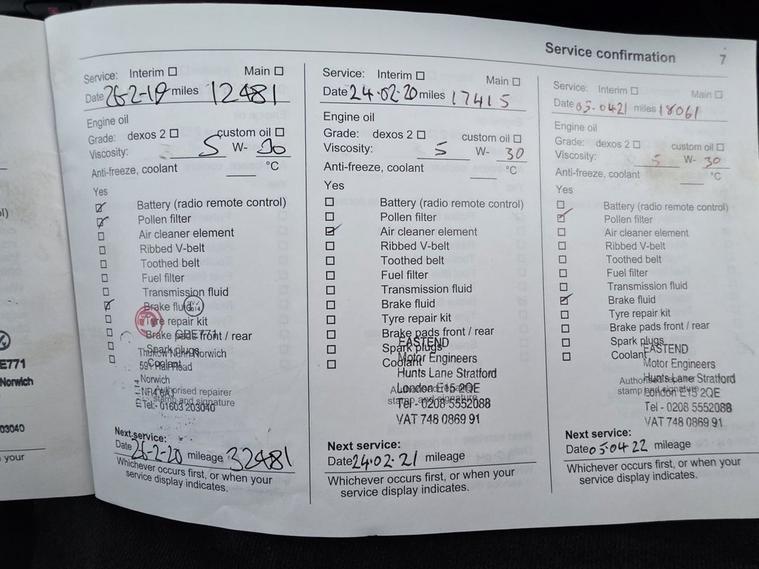 Service confirmation 7
Service: Interim Main
Date 26-2-19 miles 12481
Engine oil
Grade: dexos 2 custom oil
Viscosity: 5 W- 30
Anti-freeze, coolant °C
Yes
Battery (radio remote control)
Pollen filter
Air cleaner element
Ribbed V-belt
Toothed belt
Fuel filter
Transmission fluid
Brake fluid
Tyre repair kit
Brake pads front / rear
Spark plugs
Norwich
Coolant
Norwich
Authorised repairer
stamp and signature
Tel:- 01603 203040
Next service:
Date 26-2-20 mileage 32481
Whichever occurs first, or when your
service display indicates.
Service: Interim Main
Date 24.02.20 miles 17415
Engine oil
Grade: dexos 2 custom oil
Viscosity: 5 W- 30
Anti-freeze, coolant °C
Yes
Battery (radio remote control)
Pollen filter
Air cleaner element
Ribbed V-belt
Toothed belt
Fuel filter
Transmission fluid
Brake fluid
Tyre repair kit
Brake pads front / rear
Spark plugs
EASTEND
Coolant
Motor Engineers
Hunts Lane Stratford
London E15 2QE
Tel - 0208 5552088
VAT 748 0869 91
Next service:
Date 24.02.21 mileage
Whichever occurs first, or when your
service display indicates.
Service: Interim Main
Date 05.0421 miles 18061
Engine oil
Grade: dexos 2 custom oil
Viscosity: 5 W- 30
Anti-freeze, coolant °C
Yes
Battery (radio remote control)
Pollen filter
Air cleaner element
Ribbed V-belt
Toothed belt
Fuel filter
Transmission fluid
Brake fluid
Tyre repair kit
Brake pads front / rear
Spark plugs
EASTEND
Coolant
Motor Engineers
Hunts Lane Stratford
London E15 2QE
Tel - 0208 5552088
VAT 748 0869 91
Next service:
Date 05.04 22 mileage
Whichever occurs first, or when your
service display indicates.
E771
Norwich
03040
your